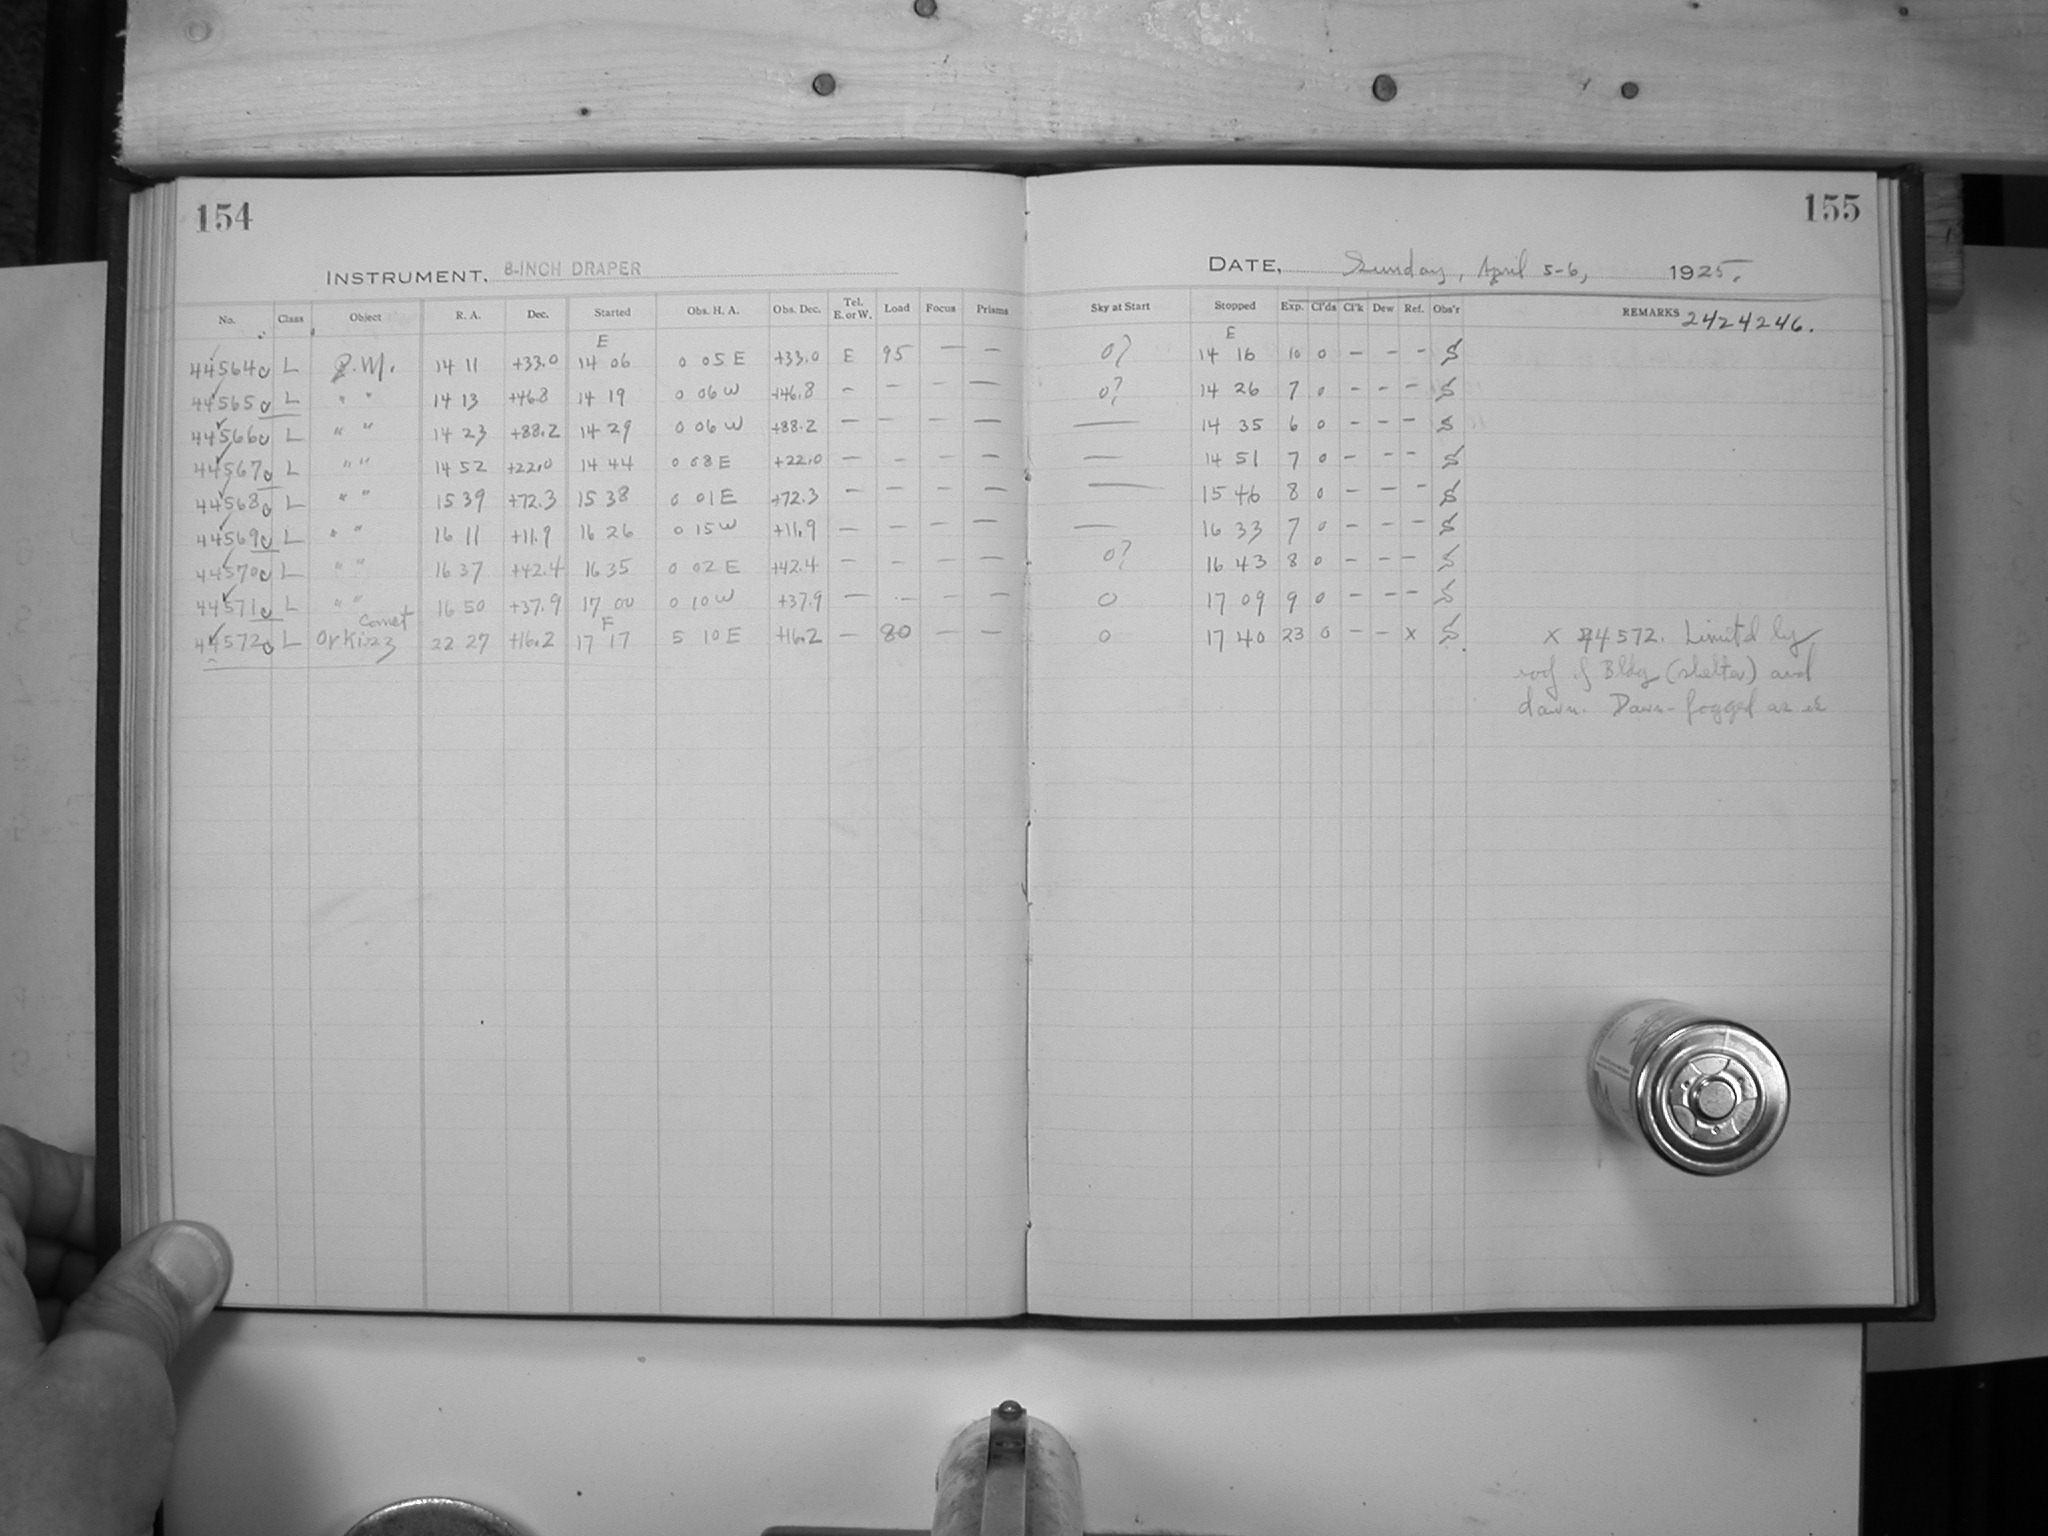 154
155
INSTRUMENT. 8-INCH DRAPER
DATE, Sunday, April 5-6, 1925.
No. Class Object R. A. Dec. Started Obs. H. A. Obs. Dec. Tel. E. or W. Load Focus Prisms Sky at Start Stopped Exp. Cl'ds Cl'k Dew Ref. Obs'r REMARKS 2424246.
E E
44564 L P.M. 14 11 +33.0 14 06 0 05 E +33.0 E 95 — — 0? 14 16 10 0 – – – S
44565 L " " 14 13 +46.8 14 19 0 06 W +46.8 – – – — 0? 14 26 7 0 – – – S
44566 L " " 14 23 +88.2 14 29 0 06 W +88.2 — – — — — 14 35 6 0 – – – S
44567 L " " 14 52 +22.0 14 44 0 08 E +22.0 — – — — — 14 51 7 0 – – – S
44568 L " " 15 39 +72.3 15 38 0 01 E +72.3 – – – — — 15 46 8 0 – – – S
44569 L " " 16 11 +11.9 16 26 0 15 W +11.9 — – — — — 16 33 7 0 – – – S
44570 L " " 16 37 +42.4 16 35 0 02 E +42.4 — – — — 0? 16 43 8 0 – – – S
44571 L " " 16 50 +37.9 17 00 0 10 W +37.9 — – – — 0 17 09 9 0 – – – S
Comet
44572 L Orkisz 22 27 +16.2 17 17 5 10 E +16.2 – 80 – — 0 17 40 23 0 – – x S x 44572. Limit'd by
roof of Bldg (shelter) and
dawn. Dawn-fogged as is